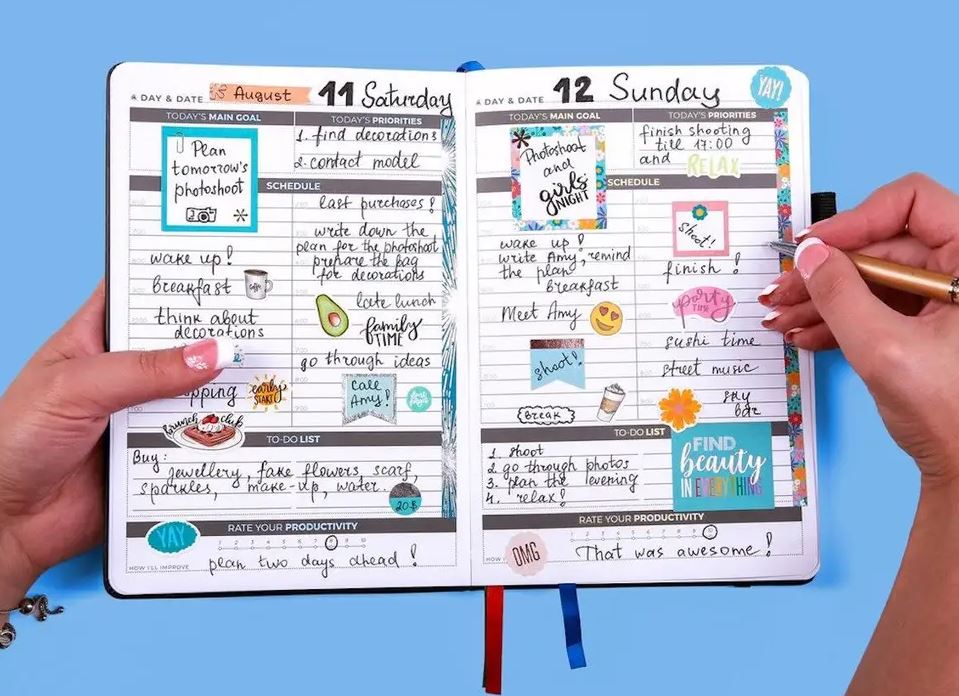 DAY & DATE August 11 Saturday
TODAY'S MAIN GOAL
Plan
tomorrow's
photoshoot
TODAY'S PRIORITIES
1. find decorations
2. contact model
SCHEDULE
wake up!
breakfast
think about
decorations
early
START
brunch club
last purchases!
write down the
plan for the photoshoot
prepare the bag
for decorations
late lunch
family
TIME
go through ideas
Call
Amy!
TO-DO LIST
Buy:
jewellery, fake flowers, scarf,
sparkles, make-up, water.
20$
RATE YOUR PRODUCTIVITY
YAY
1 2 3 4 5 6 7 8 9 10
HOW I'LL IMPROVE
plan two days ahead!
DAY & DATE 12 Sunday
YAY!
TODAY'S MAIN GOAL
Photoshoot
and
girls'
NIGHT
TODAY'S PRIORITIES
finish shooting
till 17:00
and RELAX
SCHEDULE
wake up!
write Amy, remind
the plan
breakfast
Meet Amy
shoot!
BREAK
shoot!
finish!
party
TIME
sushi time
street music
sky
bar
TO-DO LIST
1. shoot
2. go through photos
3. plan the evening
4. relax!
FIND
beauty
IN EVERYTHING
RATE YOUR PRODUCTIVITY
OMG
1 2 3 4 5 6 7 8 9 10
HOW
That was awesome!